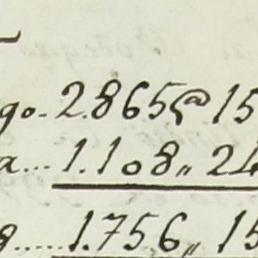 go. 2.865 @ 15
a... 1.108,, 24
g..... 1.756,, 15